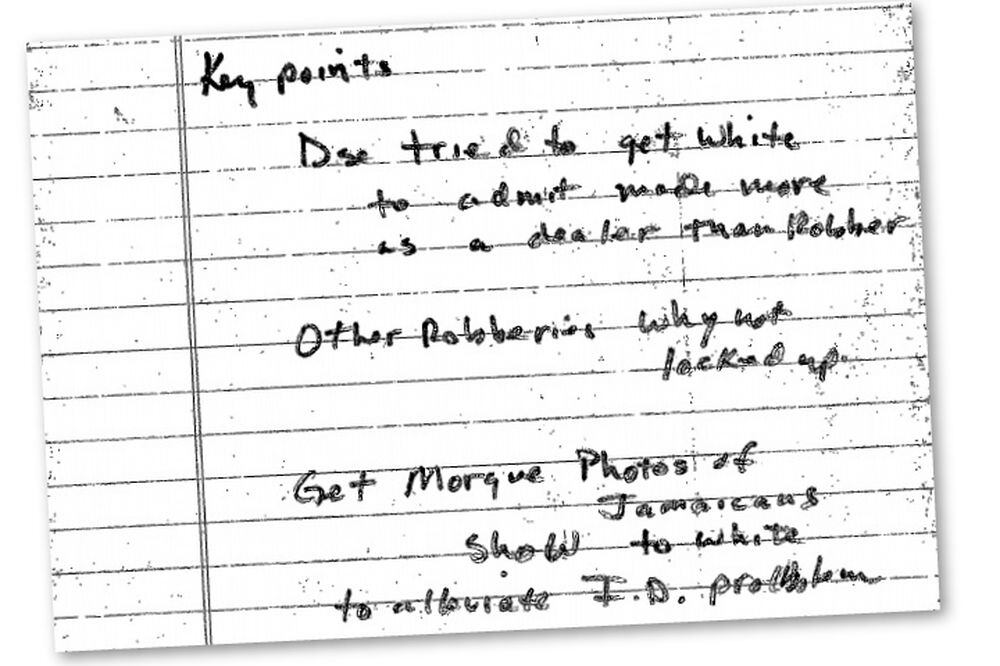 Key points
Dse tried to get White
to admit made more
as a dealer than Robber
Other Robberies why not
locked up.
Get Morgue Photos of
Jamaicans
Show to white
to alleviate I.D. problem